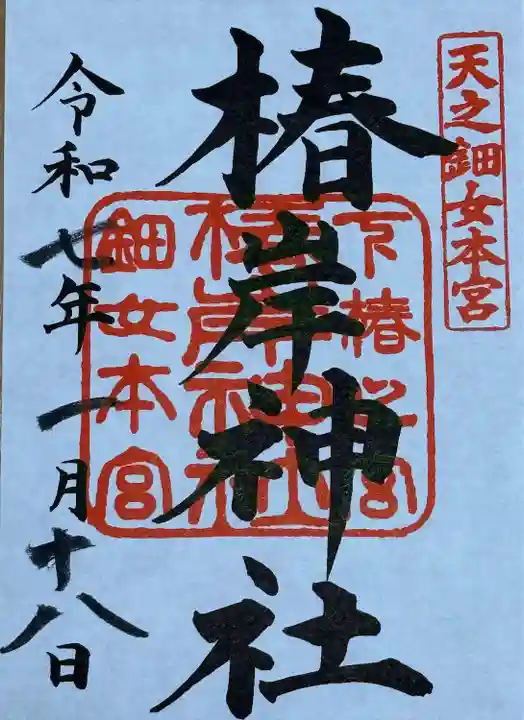 天之鈿女本宮
椿岸神社
下椿
宮
椿岸神社
鈿女本宮
令和七年一月十八日